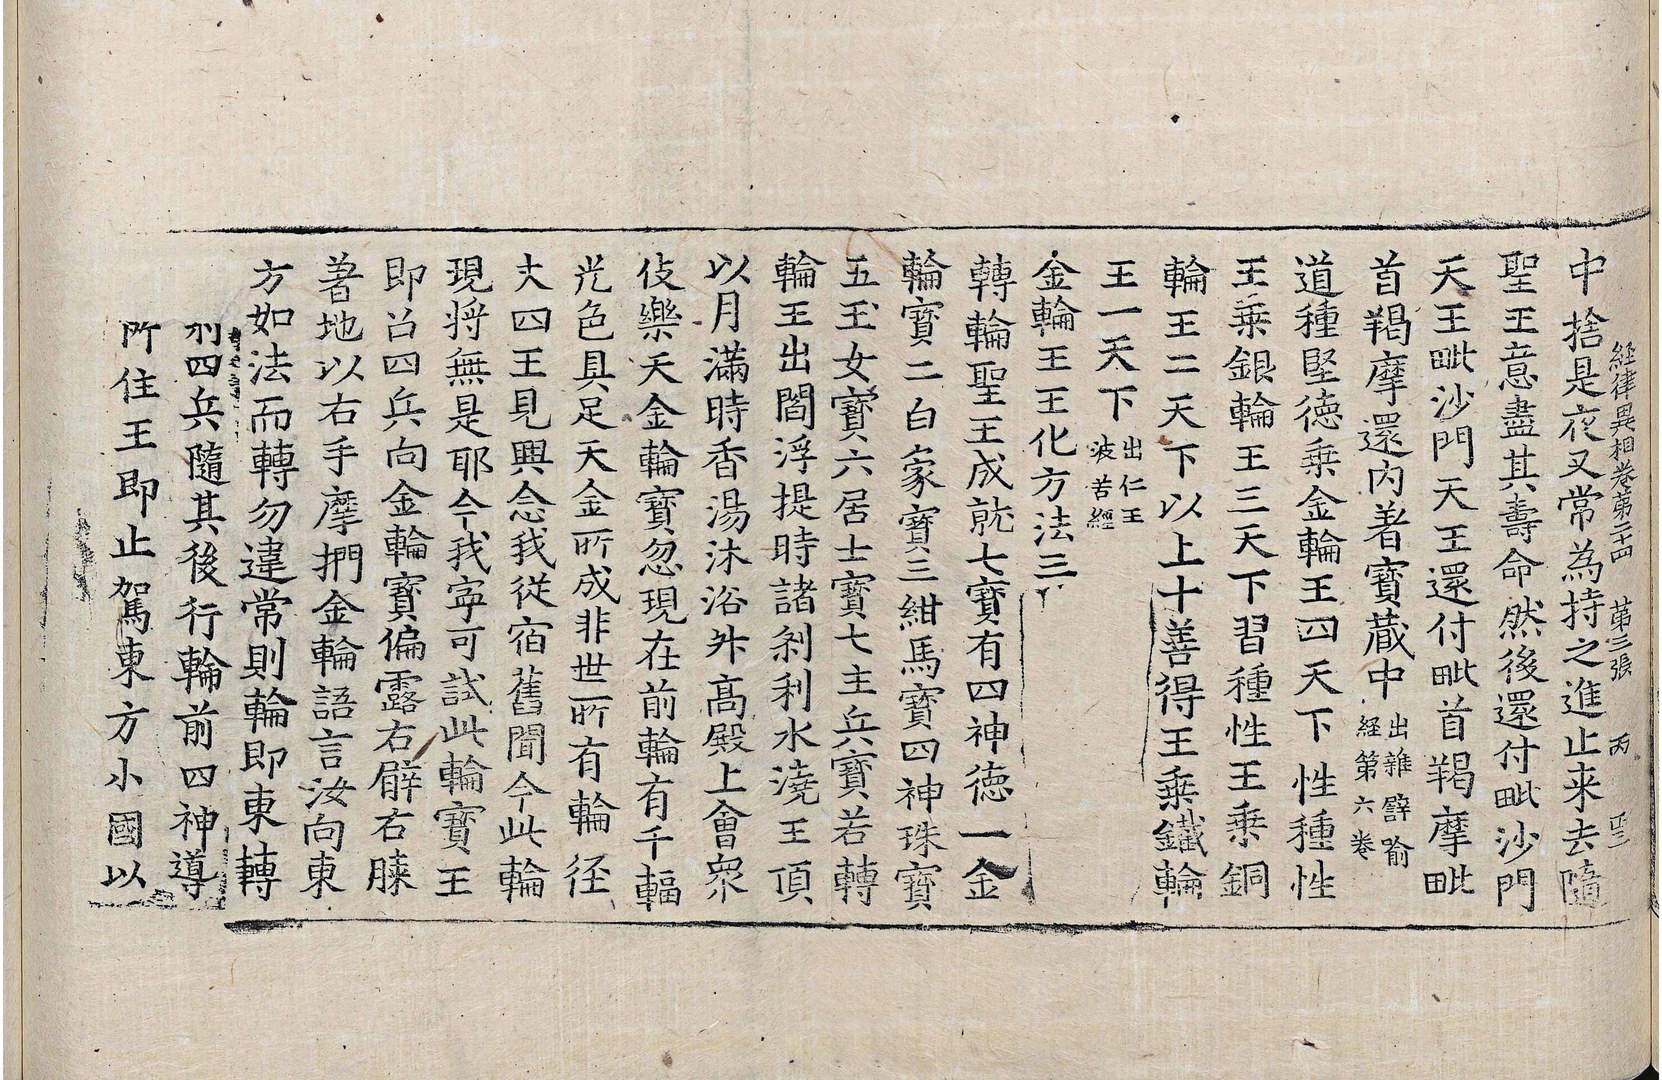 経律異相卷第二十四 第三張 丙
中捨是夜叉常為持之進止来去隨
聖王意盡其壽命然後還付毗沙門
天王毗沙門天王還付毗首羯摩毗
首羯摩還內著寶藏中出雜譬喻経第六卷
道種堅德乗金輪王四天下性種性
王乗銀輪王三天下習種性王乗銅
輪王二天下以上十善得王乗鐵輪
王一天下出仁王波若經
金輪王王化方法三
轉輪聖王成就七寶有四神德一金
輪寶二白象寶三紺馬寶四神珠寶
五玉女寶六居士寶七主兵寶若轉
輪王出閻浮提時諸剎利水澆王頂
以月滿時香湯沐浴昇高殿上會衆
伎樂天金輪寶忽現在前輪有千輻
光色具足天金所成非世所有輪径
丈四王見興念我從宿舊聞今此輪
現将無是耶今我寧可試此輪寶王
即召四兵向金輪寶偏露右臂右膝
著地以右手摩捫金輪語言汝向東
方如法而轉勿違常則輪即東轉
四兵隨其後行輪前四神導
所住王即止駕東方小國以